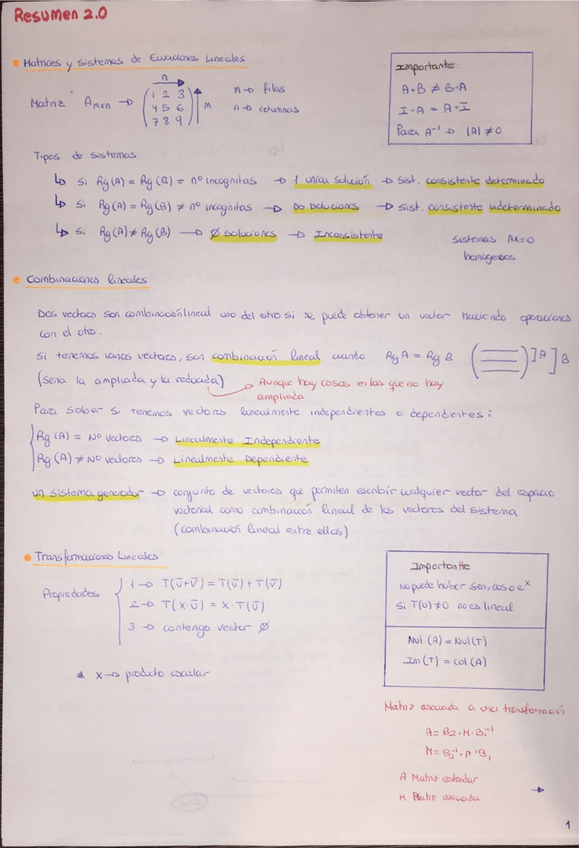 Resumen 2.0
Matrices y sistemas de Ecuaciones Lineales
n
Matriz Amxn → (1 2 3
4 5 6
7 8 9) m
m → filas
n → columnas
Importante:
A·B ≠ B·A
I·A = A·I
Para A⁻¹ → |A| ≠ 0
Tipos de sistemas
↳ Si Rg(A) = Rg(B) = nº incognitas → 1 unica solución → Sist. consistente determinado
↳ Si Rg(A) = Rg(B) ≠ nº incognitas → ∞ soluciones → Sist. consistente indeterminado
↳ Si Rg(A) ≠ Rg(B) → ∅ soluciones → Inconsistente
Sistemas AX=0
homogeneos
Combinaciones lineales
Dos vectores son combinación lineal uno del otro si se puede obtener un vector haciendo operaciones
con el otro.
Si tenemos varios vectores, son combinación lineal cuando Rg A = Rg B ( ) ] A ] B
(sería la ampliada y la reducida) → Aunque hay cosas en las que no hay
ampliada
Para saber si tenemos vectores linealmente independientes o dependientes:
Rg(A) = Nº vectores → Linealmente Independiente
Rg(A) ≠ Nº vectores → Linealmente Dependiente
un sistema generador → conjunto de vectores que permiten escribir cualquier vector del espacio
vectorial como combinación lineal de los vectores del sistema
(combinación lineal entre ellos)
Transformaciones Lineales
Propiedades
1 → T(ū+v̄) = T(ū) + T(v̄)
2 → T(x·ū) = x·T(ū)
3 → contenga vector ∅
* x → producto escalar
Importante
No puede haber sen, cos o eˣ
Si T(0) ≠ 0 no es lineal
Nul(A) = Nul(T)
Im(T) = col(A)
Matriz asociada a una transformación
A = B₂·M·B₁⁻¹
M = B₂⁻¹·A·B₁
A Matriz estandar
M Matriz asociada
→
1